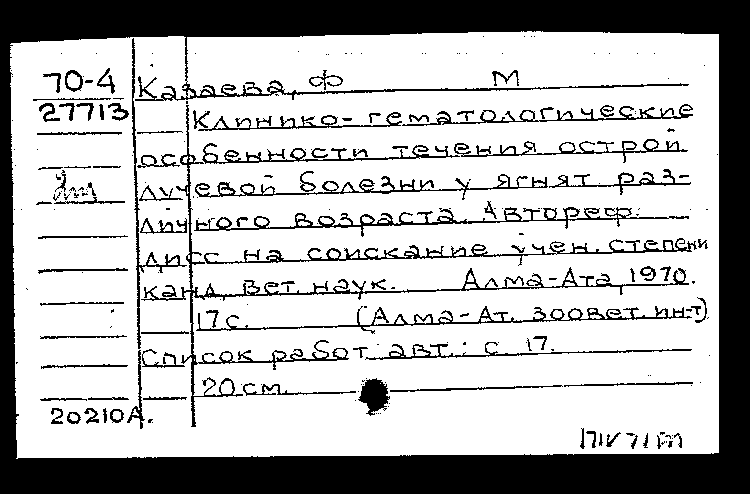 70-4 Казаева, Ф М
27713 Клинико-гематологические
особенности течения острой
2ш лучевой болезни у ягнят раз-
личного возраста. Автореф.
дисс на соискание учен. степени
канд. вет. наук. Алма-Ата, 1970.
17 с. (Алма-Ат. зоовет. ин-т)
Список работ авт.: с. 17.
20 см.
20210А.